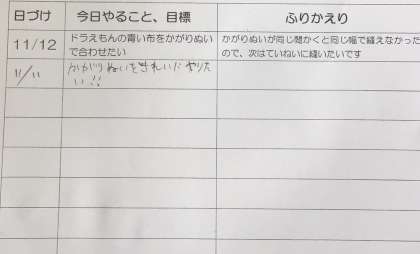 日づけ 今日やること、目標 ふりかえり
11/12 ドラえもんの青い布をかがりぬい かがりぬいが同じ間かくと同じ幅で縫えなかった
で合わせたい ので、次はていねいに縫いたいです
11/11 かがりぬいをきれいにやりた
い!!